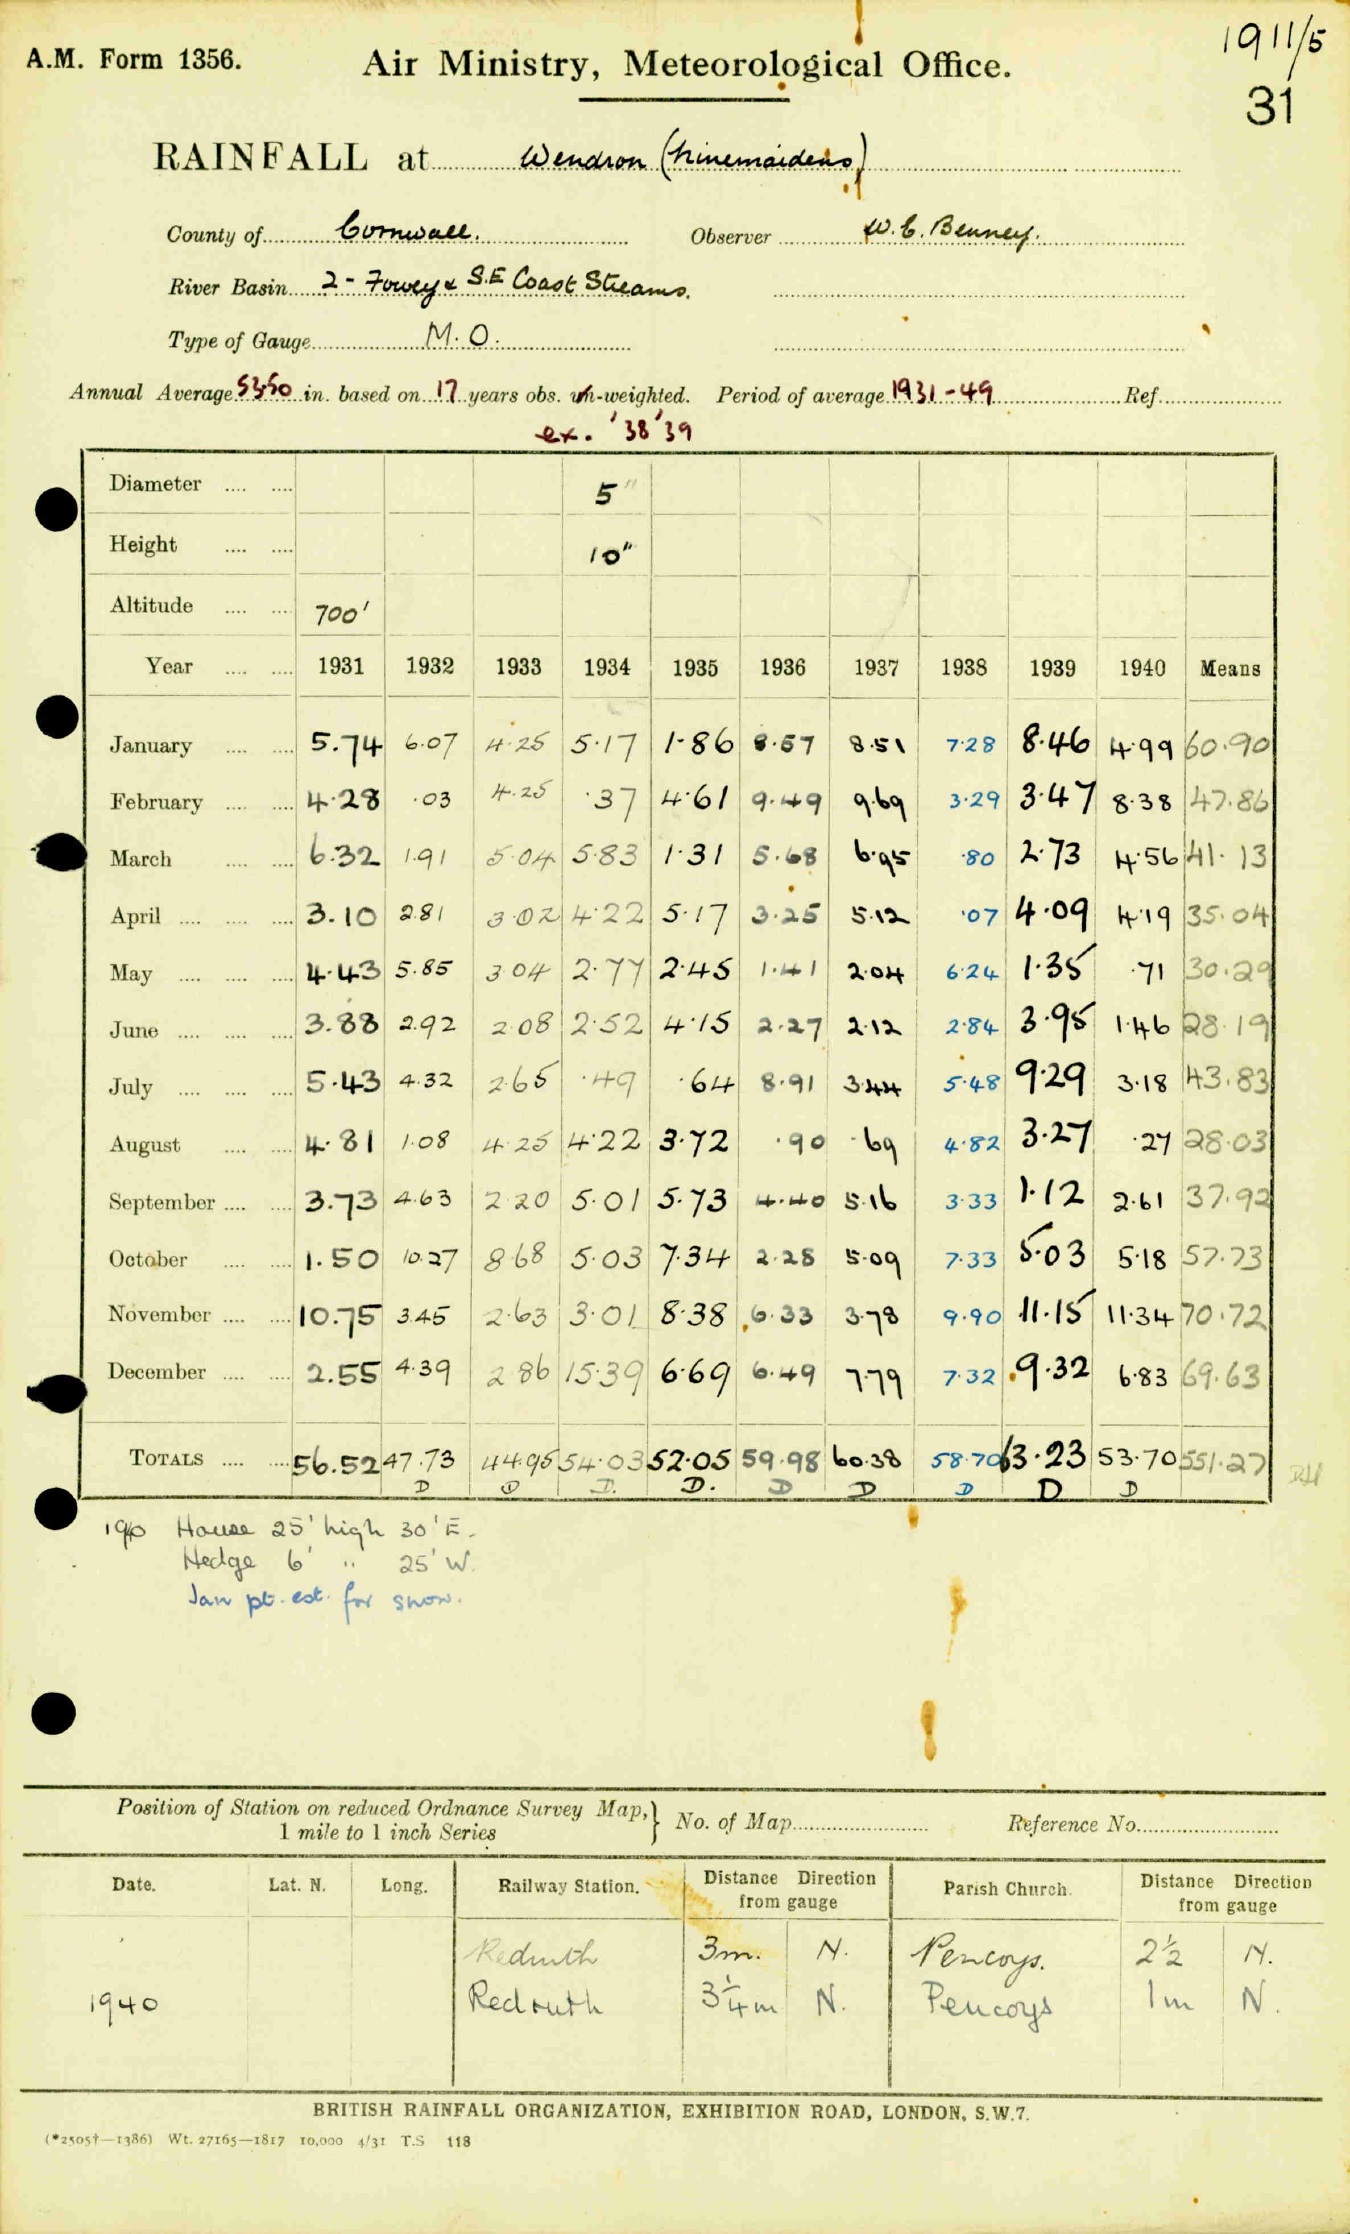 1911/5
A.M. Form 1356. Air Ministry, Meteorological Office.
31
RAINFALL at Wendron (Ninemaidens)
County of Cornwall. Observer W. C. Benney.
River Basin 2 - Fowey & S.E Coast Streams.
Type of Gauge M. O.
Annual Average 53.50 in. based on 17 years obs. un-weighted. Period of average 1931-49 Ref.
ex. '38 '39
Diameter .... .... 5"
Height .... .... 10"
Altitude .... .... 700'
Year .... .... 1931 1932 1933 1934 1935 1936 1937 1938 1939 1940 Means
January .... .... 5.74 6.07 4.25 5.17 1.86 8.57 8.51 7.28 8.46 4.99 60.90
February .... .... 4.28 .03 4.25 .37 4.61 9.49 9.69 3.29 3.47 8.38 47.86
March .... .... 6.32 1.91 5.04 5.83 1.31 5.68 6.95 .80 2.73 4.56 41.13
April .... .... .... 3.10 2.81 3.02 4.22 5.17 3.25 5.12 .07 4.09 4.19 35.04
May .... .... .... 4.43 5.85 3.04 2.77 2.45 1.41 2.04 6.24 1.35 .71 30.29
June .... .... .... 3.88 2.92 2.08 2.52 4.15 2.27 2.12 2.84 3.95 1.46 28.19
July .... .... .... 5.43 4.32 2.65 .49 .64 8.91 3.44 5.48 9.29 3.18 43.83
August .... .... 4.81 1.08 4.25 4.22 3.72 .90 .69 4.82 3.27 .27 28.03
September .... .... 3.73 4.63 2.20 5.01 5.73 4.40 5.16 3.33 1.12 2.61 37.92
October .... .... 1.50 10.27 8.68 5.03 7.34 2.28 5.09 7.33 5.03 5.18 57.73
November .... .... 10.75 3.45 2.63 3.01 8.38 6.33 3.78 9.90 11.15 11.34 70.72
December .... .... 2.55 4.39 2.86 15.39 6.69 6.49 7.79 7.32 9.32 6.83 69.63
TOTALS .... .... 56.52 47.73 44.95 54.03 52.05 59.98 60.38 58.70 63.23 53.70 551.27
D D D. D. D D D D D
1940 House 25' high 30' E.
Hedge 6' " 25' W.
Jan pt. est. for snow.
Position of Station on reduced Ordnance Survey Map, } No. of Map Reference No.
1 mile to 1 inch Series
Date. Lat. N. Long. Railway Station. Distance Direction from gauge Parish Church. Distance Direction from gauge
Redruth 3m. N. Pencoys. 2½ N.
1940 Redruth 3¼m N. Pencoys 1m N.
BRITISH RAINFALL ORGANIZATION, EXHIBITION ROAD, LONDON, S.W.7.
(*2505†—1386) Wt. 27165—1817 10,000 4/31 T.S 118